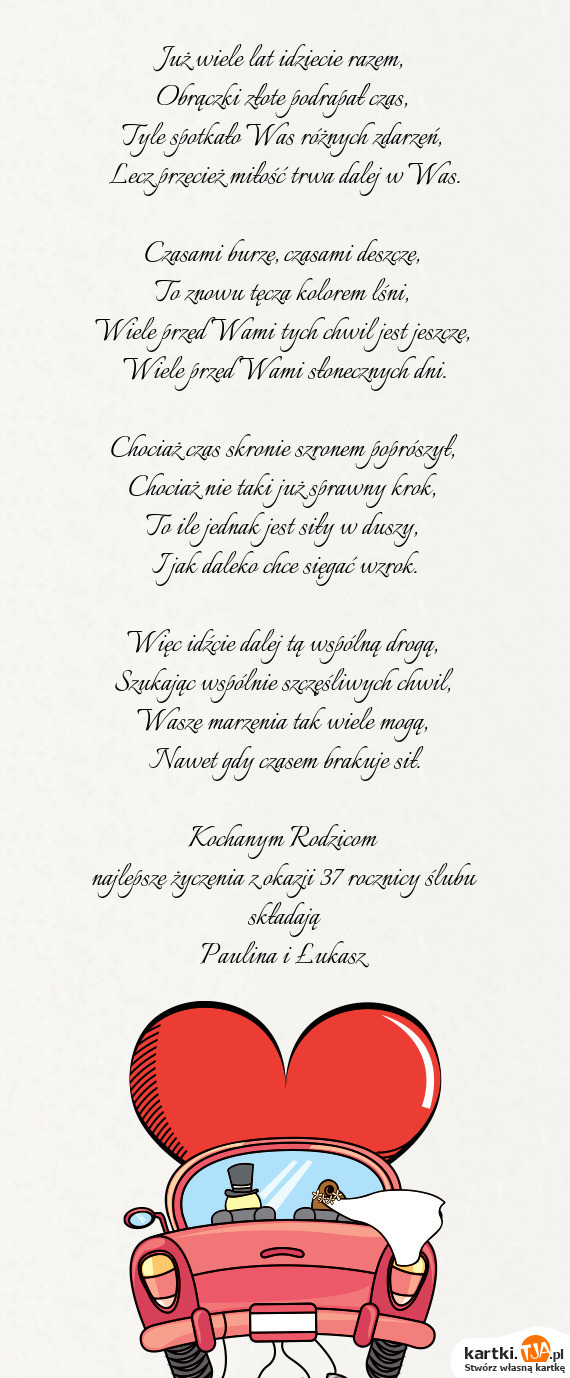 Już wiele lat idziecie razem,
Obrączki złote podrapał czas,
Tyle spotkało Was różnych zdarzeń,
Lecz przecież miłość trwa dalej w Was.
Czasami burze, czasami deszcze,
To znowu tęcza kolorem lśni,
Wiele przed Wami tych chwil jest jeszcze,
Wiele przed Wami słonecznych dni.
Chociaż czas skronie szronem poprószył,
Chociaż nie taki już sprawny krok,
To ile jednak jest siły w duszy,
I jak daleko chce sięgać wzrok.
Więc idźcie dalej tą wspólną drogą,
Szukając wspólnie szczęśliwych chwil,
Wasze marzenia tak wiele mogą,
Nawet gdy czasem brakuje sił.
Kochanym Rodzicom
najlepsze życzenia z okazji 37 rocznicy ślubu
składają
Paulina i Łukasz
kartki.TJA.pl
Stwórz własną kartkę